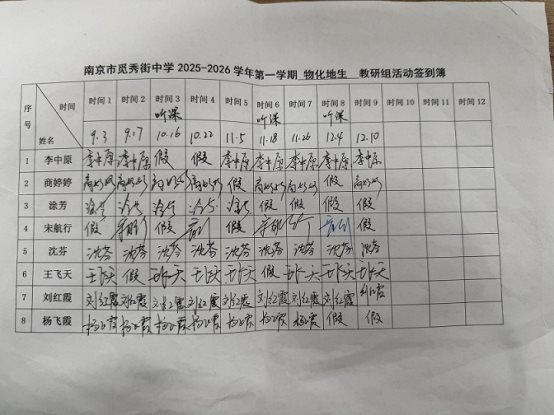 南京市觅秀街中学 2025-2026 学年第一学期 物化地生 教研组活动签到簿
序号 时间 姓名 时间 1 时间 2 时间 3 时间 4 时间 5 时间 6 时间 7 时间 8 时间 9 时间 10 时间 11 时间 12
听课 听课 听课
9.3 9.17 10.16 10.22 11.5 11.18 11.26 12.4 12.10
1 李中原 李中原 李中原 假 假 李中原 李中原 李中原 李中原 李中原
2 商婷婷 商婷婷 商婷婷 商婷婷 商婷婷 假 商婷婷 商婷婷 假 商婷婷
3 涂芳 涂芳 涂芳 涂芳 涂芳 涂芳 假 假 假 假
4 宋航行 假 假 假
5 沈芬 沈芬 沈芬 沈芬 沈芬 沈芬 沈芬 沈芬 沈芬 沈芬
6 王飞天 王飞天 假 王飞天 王飞天 王飞天 假 王飞天 王飞天 王飞天
7 刘红霞 刘红霞 刘红霞 刘红霞 刘红霞 刘红霞 刘红霞 刘红霞 刘红霞 刘红霞
8 杨飞霞 杨飞霞 杨飞霞 杨飞霞 杨飞霞 杨飞霞 杨飞霞 杨飞霞 假 假